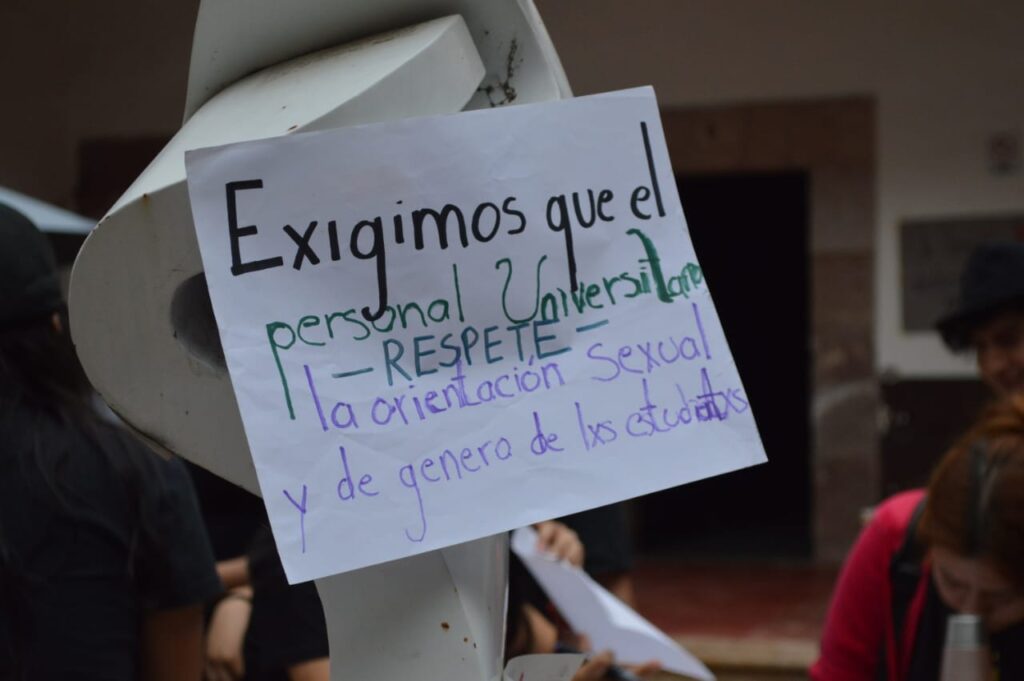 Exigimos que el
personal Universitario
- RESPETE -
la orientación Sexual
y de genero de lxs estudiantxs